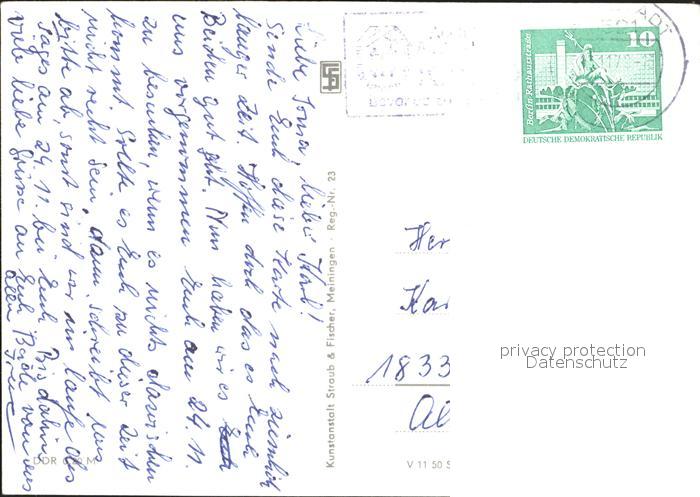 Liebe Tonna, lieber Karl!
Sende Euch diese Karte nach ziemlich
langer Zeit. Hoffen doch das es Euch
Beiden gut geht. Nun haben wir es
uns vorgenommen Euch am 24. 11.
zu besuchen, wenn es nichts dazwischen
kommt. Sollte es Euch zu dieser Zeit
nicht recht sein, dann schreibt uns
bitte ab, sonst sind wir im laufe des
Tages am 24. 11. bei Euch. Bis dahin
viele liebe Grüsse an Euch Beide von uns
allen
DDR M
Kunstanstalt Straub & Fischer, Meiningen · Reg.-Nr. 23
V 11 50
10
Berlin, Rathausstraße
DEUTSCHE DEMOKRATISCHE REPUBLIK
Her
Ka
1833
privacy protection
Datenschutz